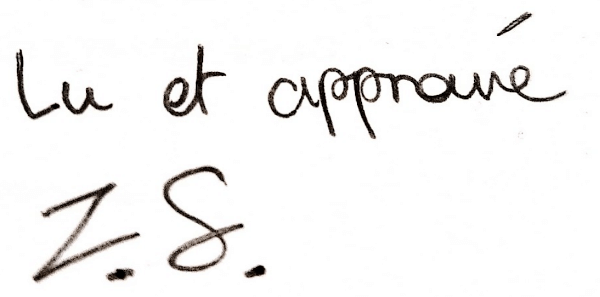 Lu et approuvé
Z.S.